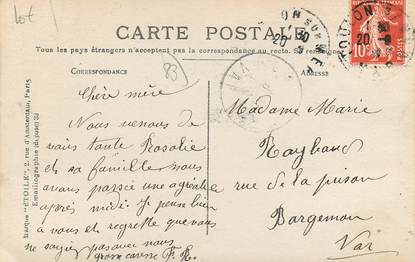 Lot
CARTE POSTALE
Tous les pays étrangers n'acceptent pas la correspondance au recto. Se renseigner
CORRESPONDANCE
ADRESSE
83
Chère mère
Nous venons de
voir tante Rosalie
et sa famille nous
avons passée une agréable
après midi. Je pense bien
a vous et regrette que vous
ne soyiez pas avec nous
grosse caresse F. R.
Madame Marie
Raybaud
rue de la prison
Bargemon
Var
Marque "ETOILE", 2, rue d'Amsterdam, Paris
Emaillographie
TOULON
10